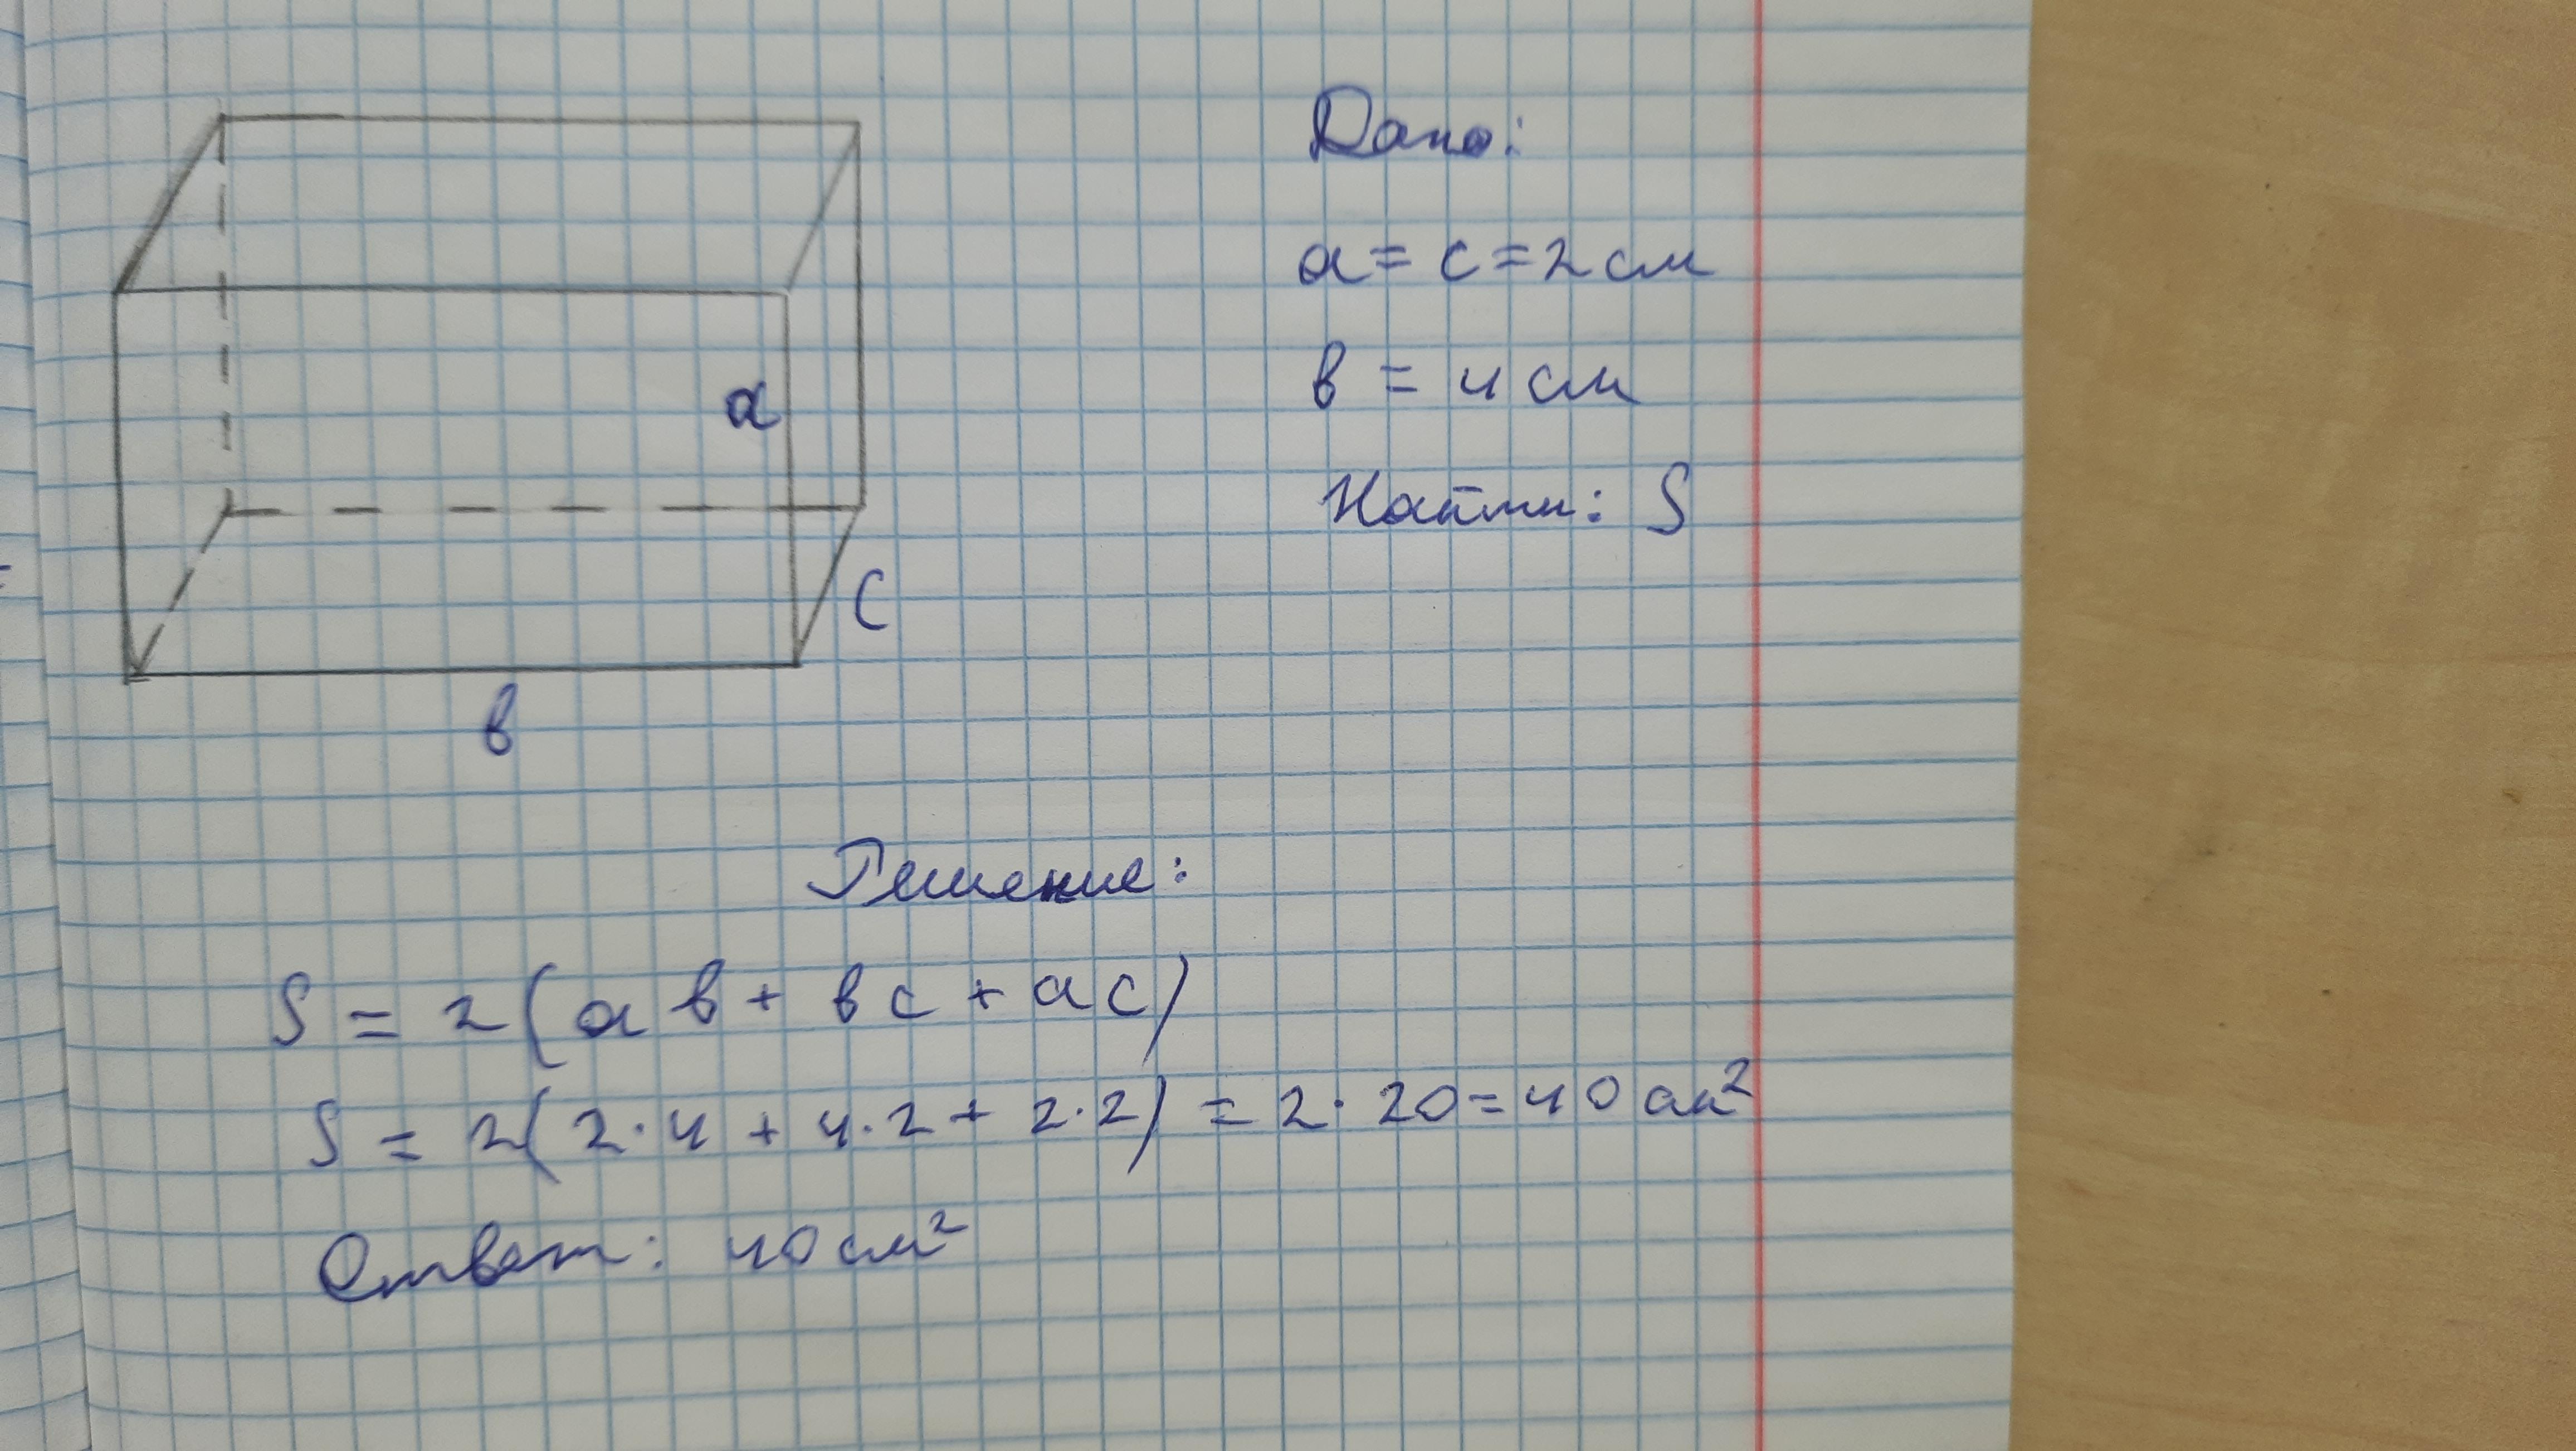 Дано:
a = c = 2 см
в = 4 см
Найти: S
a
c
в
Решение:
S = 2(aв + вc + ac)
S = 2(2·4 + 4·2 + 2·2) = 2·20 = 40 см²
Ответ: 40 см²